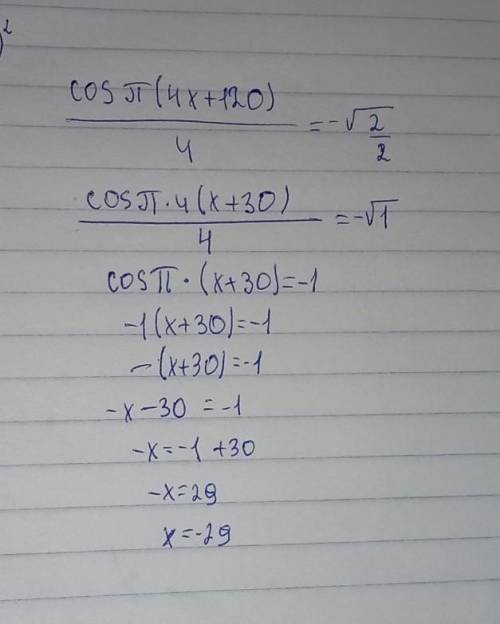 2
cos π(4x+120)/4 = -√(2/2)
cosπ·4(x+30)/4 = -√1
cosπ·(x+30)=-1
-1(x+30)=-1
-(x+30)=-1
-x-30=-1
-x=-1+30
-x=29
x=-29